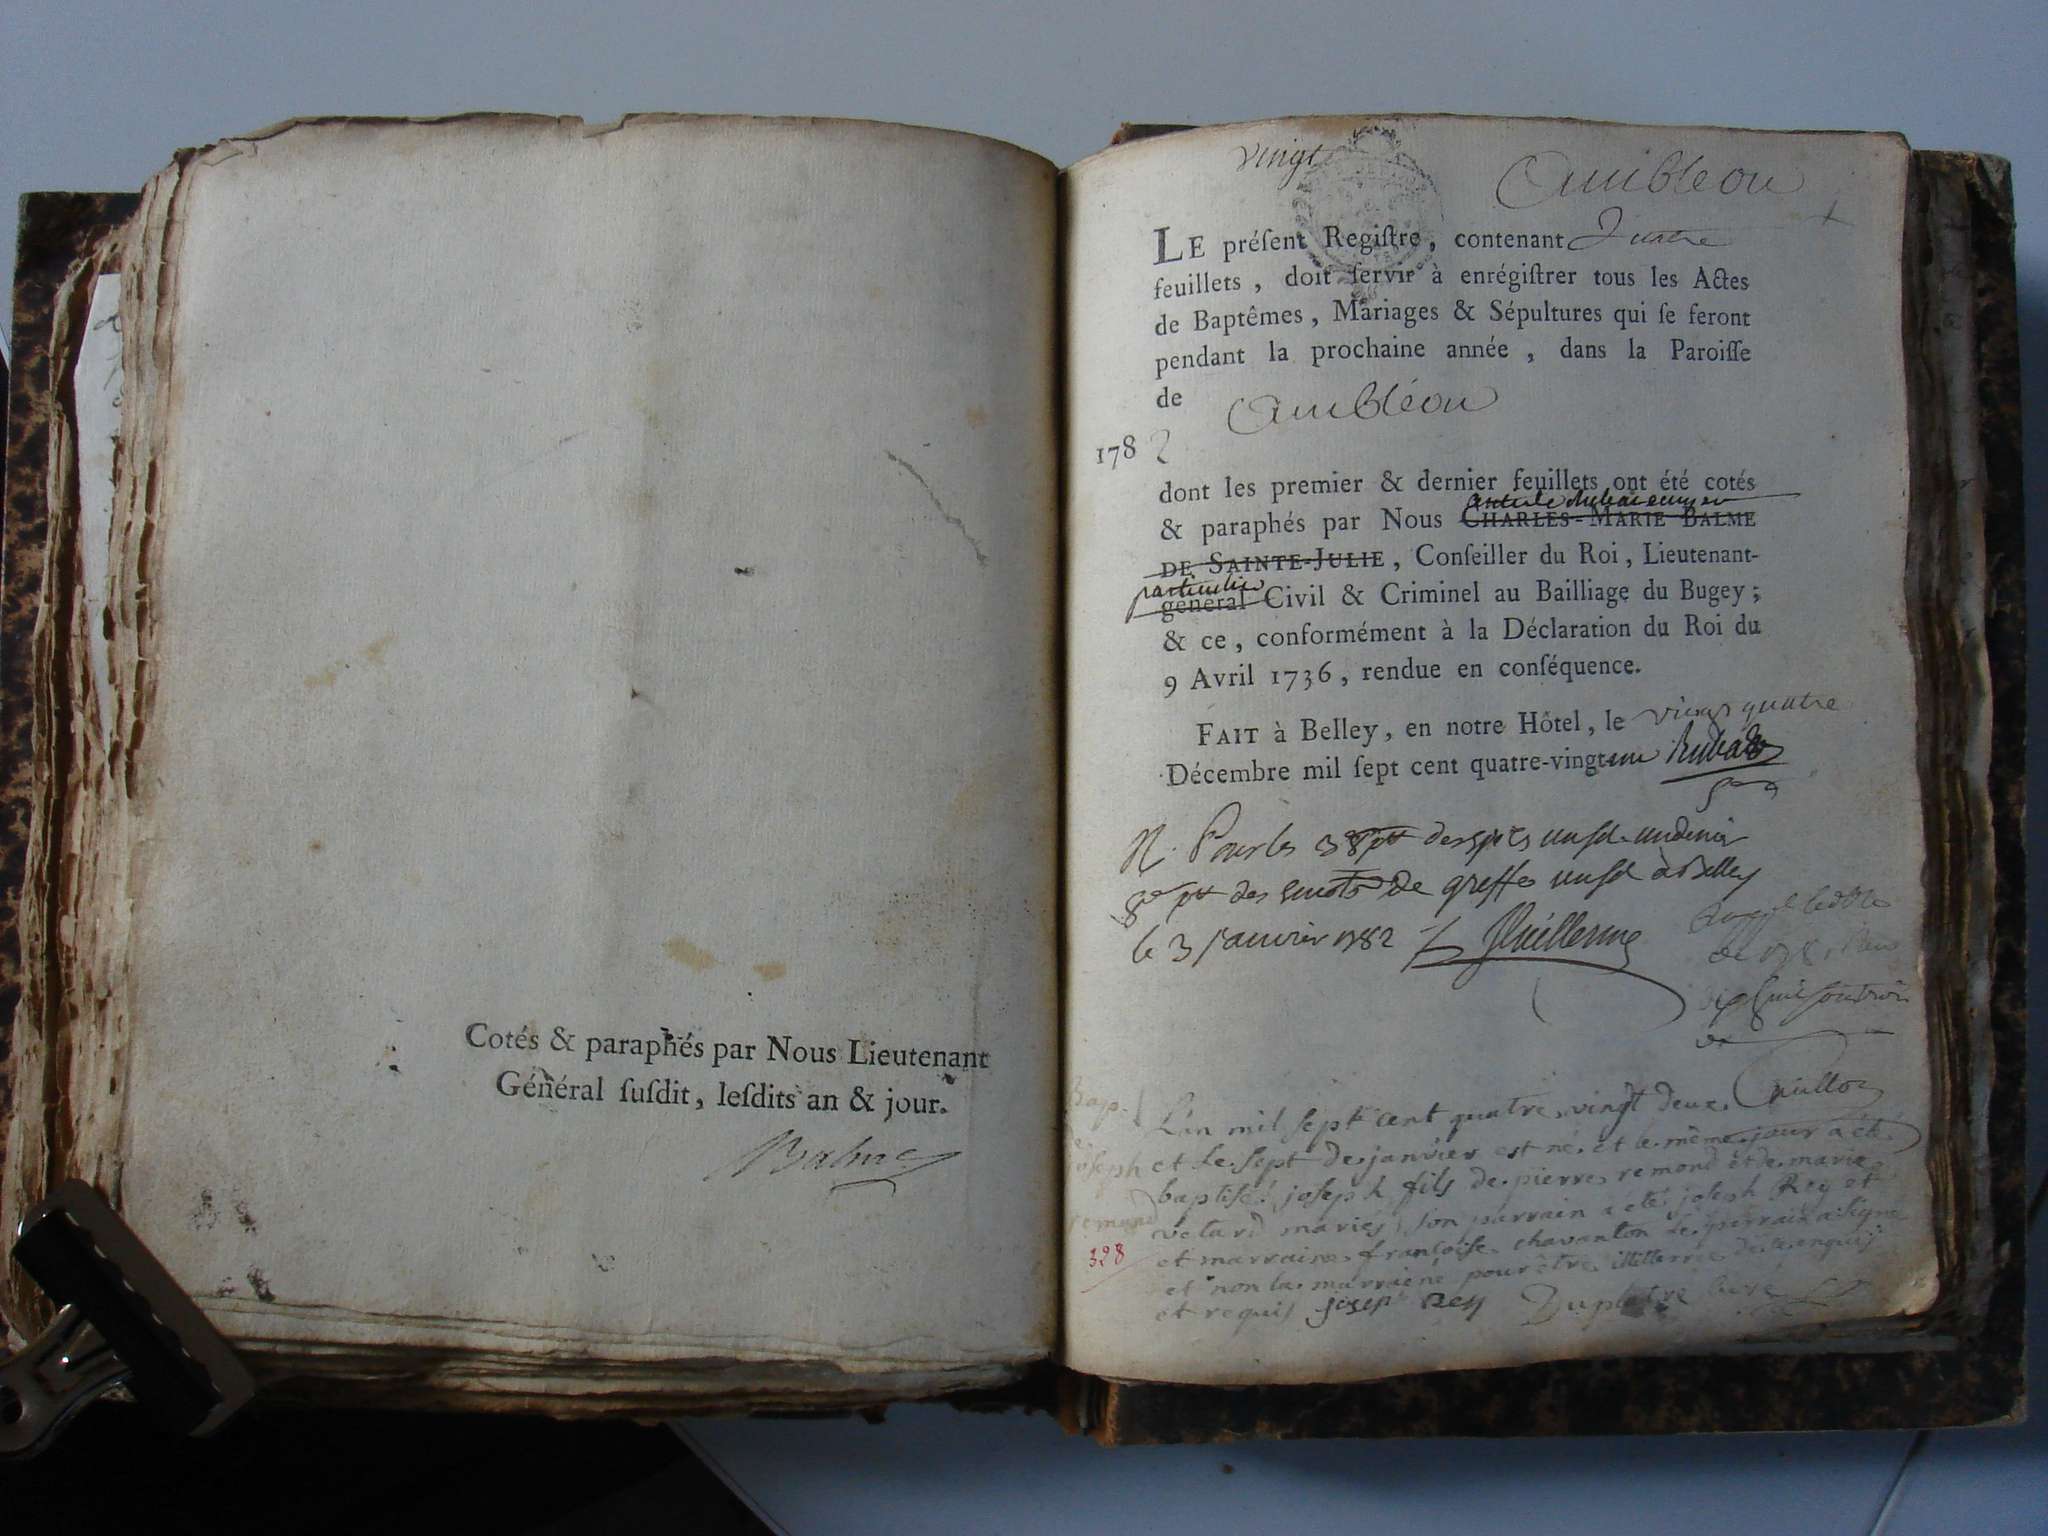 Cotés & paraphés par Nous Lieutenant
Général ſuſdit, leſdits an & jour.
Balme
vingt
Ambleon
LE préſent Regiſtre, contenant Quatre
feuillets, doit ſervir à enrégiſtrer tous les Actes
de Baptêmes, Mariages & Sépultures qui ſe feront
pendant la prochaine année, dans la Paroiſſe
de Ambléon
178 2
dont les premier & dernier feuillets ont été cotés
& paraphés par Nous CHARLES-MARIE BALME
DE SAINTE-JULIE, Conſeiller du Roi, Lieutenant-
particulier
général Civil & Criminel au Bailliage du Bugey;
& ce, conformément à la Déclaration du Roi du
9 Avril 1736, rendue en conſéquence.
FAIT à Belley, en notre Hôtel, le vingt quatre
Décembre mil ſept cent quatre-vingt-un Rubat
des de greffe à Belley
le 3 janvier 1782 Guillerme
Bap.
de
joseph
remond
328
L'an mil sept cent quatre vingt deux
et le sept de janvier est né et le même jour a été
baptisé joseph fils de pierre remond et de marie
vetard mariés, son parrain a été joseph Rey et
et marraine françoise chavanton le parrain a signé
et non la marraine pour être illitterée de ce enquis
et requis joseph Rey Duplatre curé